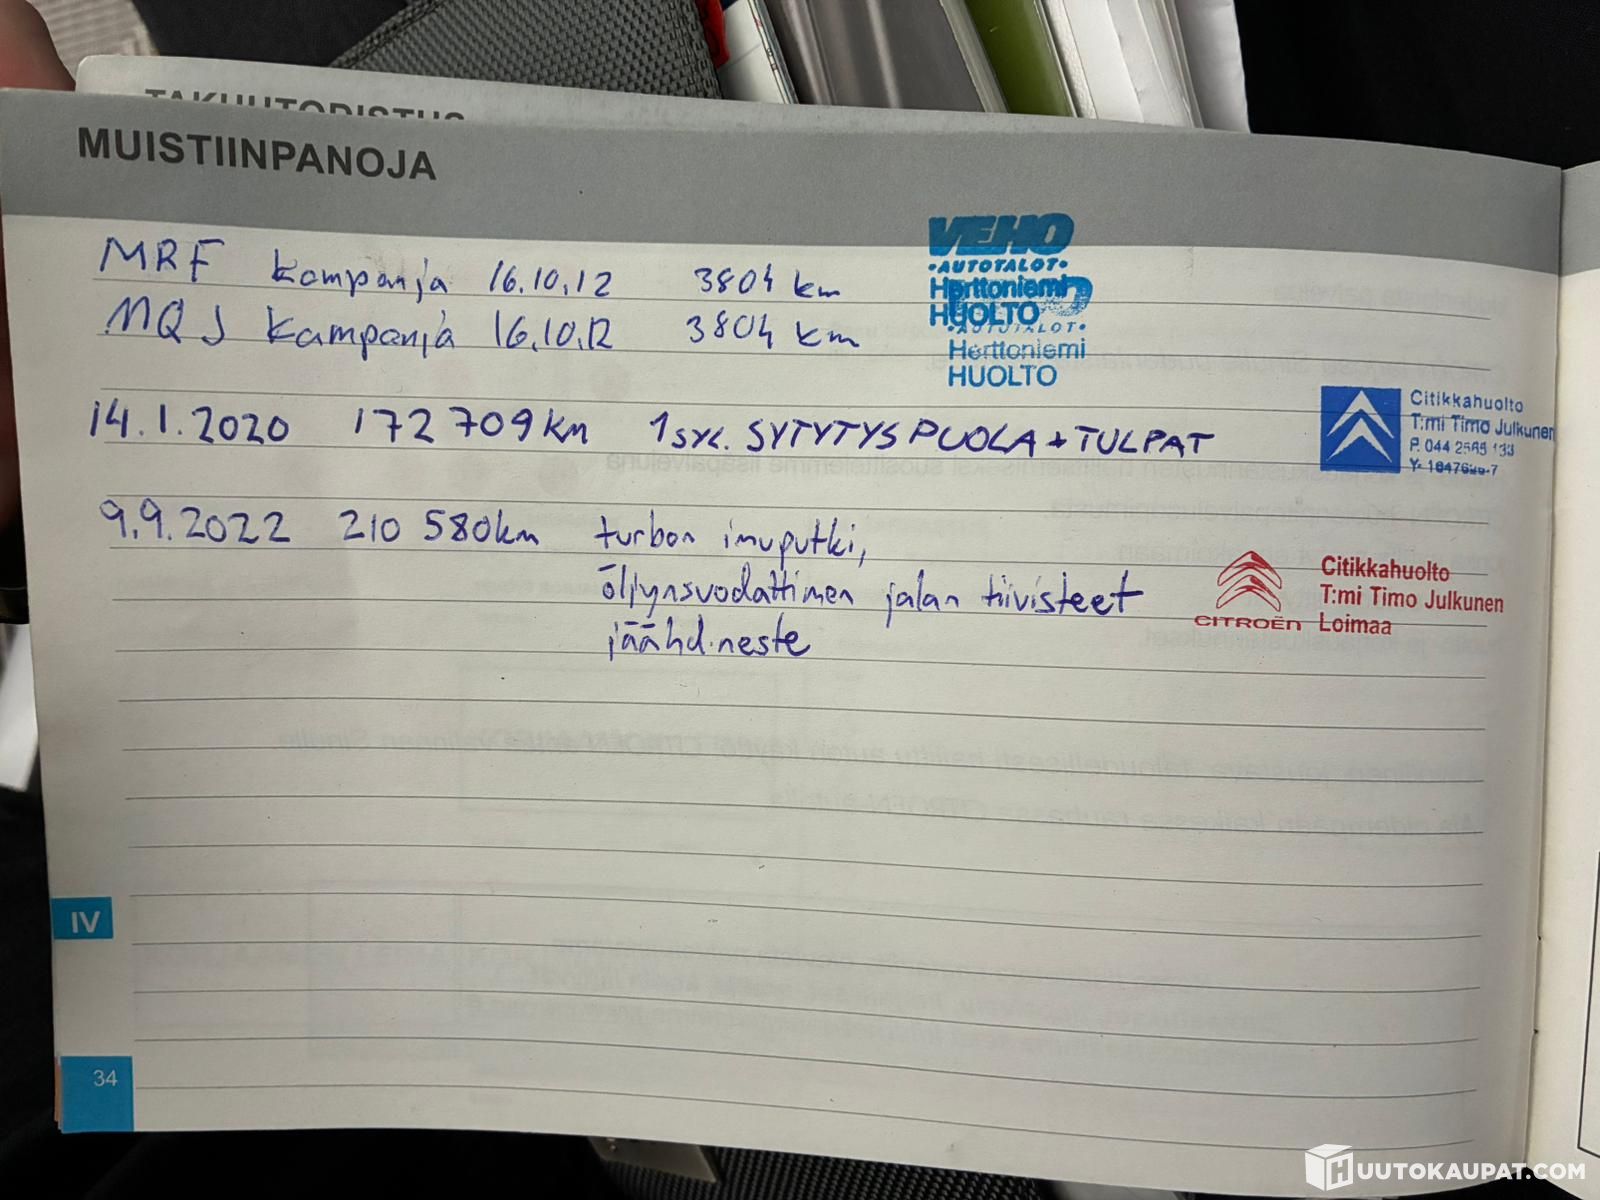 TAKUUTODISTUS
MUISTIINPANOJA
MRF kampanja 16.10.12 3804 km
MQJ kampanja 16.10.12 3804 km
VEHO
•AUTOTALOT•
Herttoniemi
HUOLTO
•AUTOTALOT•
Herttoniemi
HUOLTO
14.1.2020 172 709 km 1 syl. SYTYTYS PUOLA + TULPAT
Citikkahuolto
T:mi Timo Julkunen
P. 044 2565 133
9.9.2022 210 580km turbon imuputki,
öljynsuodattimen jalan tiivisteet
jäähd.neste
CITROËN
Citikkahuolto
T:mi Timo Julkunen
Loimaa
IV
34
HUUTOKAUPAT.COM